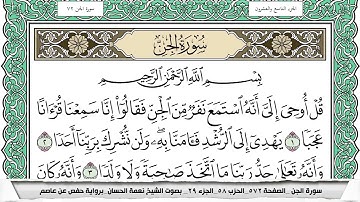 الجزء التاسع والعشرون
سورة الجن ٧٢
سُورَةُ الجِنّ
بِسْمِ اللَّهِ الرَّحْمَٰنِ الرَّحِيمِ
قُلْ أُوحِىَ إِلَىَّ أَنَّهُ ٱسْتَمَعَ نَفَرٌ مِّنَ ٱلْجِنِّ فَقَالُوٓا۟ إِنَّا سَمِعْنَا قُرْءَانًا
عَجَبًا ١ يَهْدِىٓ إِلَى ٱلرُّشْدِ فَـَٔامَنَّا بِهِۦ ۖ وَلَن نُّشْرِكَ بِرَبِّنَآ أَحَدًا ٢
وَأَنَّهُۥ تَعَٰلَىٰ جَدُّ رَبِّنَا مَا ٱتَّخَذَ صَٰحِبَةً وَلَا وَلَدًا ٣ وَأَنَّهُۥ كَانَ
سورة الجن - الصفحة ٥٧٢ - الحزب ٥٨ - الجزء ٢٩ - بصوت الشيخ نعمة الحسان - برواية حفص عن عاصم